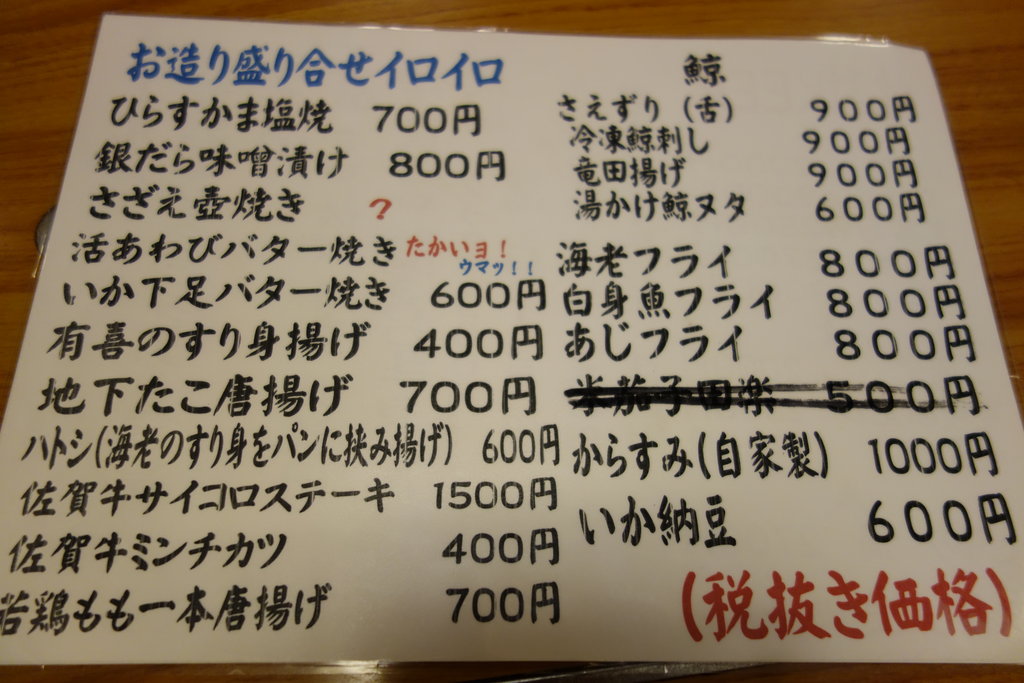 お造り盛り合せイロイロ
ひらすかま塩焼 700円
銀だら味噌漬け 800円
さざえ壺焼き ?
活あわびバター焼き たかいヨ!
ウマッ!!
いか下足バター焼き 600円
有喜のすり身揚げ 400円
地下たこ唐揚げ 700円
ハトシ(海老のすり身をパンに挟み揚げ) 600円
佐賀牛サイコロステーキ 1500円
佐賀牛ミンチカツ 400円
若鶏もも一本唐揚げ 700円
鯨
さえずり(舌) 900円
冷凍鯨刺し 900円
竜田揚げ 900円
湯かけ鯨ヌタ 600円
海老フライ 800円
白身魚フライ 800円
あじフライ 800円
米茄子田楽 500円
からすみ(自家製) 1000円
いか納豆 600円
(税抜き価格)